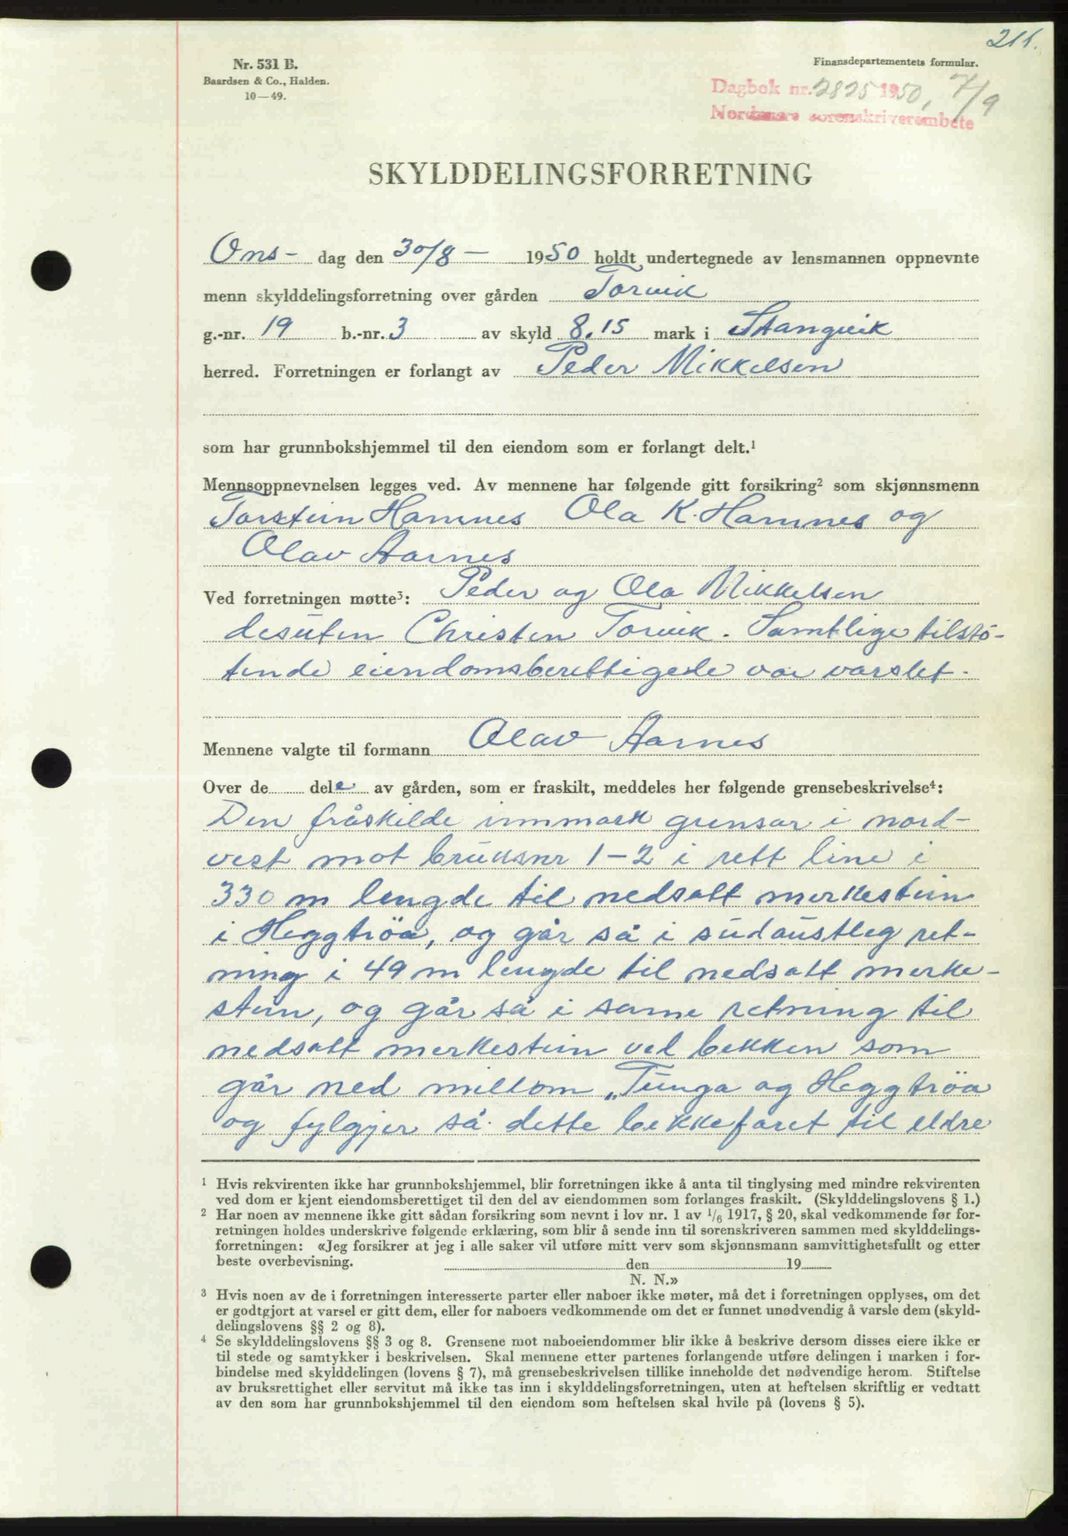 211.
Nr. 531 B.
Baardsen & Co., Halden.
10—49.
Finansdepartementets formular.
Dagbok nr. 2825 1950, 7/9
Nordmøre sorenskriverembete
SKYLDDELINGSFORRETNING
Ons- dag den 30/8 — 1950 holdt undertegnede av lensmannen oppnevnte
menn skylddelingsforretning over gården Torvik
g.-nr. 19 b.-nr. 3 av skyld 8.15 mark i Stangvik
herred. Forretningen er forlangt av Peder Mikkelsen
som har grunnbokshjemmel til den eiendom som er forlangt delt.¹
Mennsoppnevnelsen legges ved. Av mennene har følgende gitt forsikring² som skjønnsmenn
Torstein Hamnes Ola K. Hamnes og
Olav Aarnes
Ved forretningen møtte³: Peder og Ola Mikkelsen
desuten Christen Torvik. Samtlige tilstø-
tende eiendomsberettigede var varslet.
Mennene valgte til formann Olav Aarnes
Over de dele av gården, som er fraskilt, meddeles her følgende grensebeskrivelse⁴:
Den fråskilde innmark grensar i nord-
vest mot bruksnr 1-2 i rett line i
330 m lengde til nedsatt merkestein
i Heggtrøa, og går så i sudaustleg ret-
ning i 49 m lengde til nedsatt merke-
stein, og går så i same retning til
nedsatt merkestein ved bekken som
går ned millom „Tunga og Heggtrøa
og fylgjer så dette bekkefaret til eldre
¹ Hvis rekvirenten ikke har grunnbokshjemmel, blir forretningen ikke å anta til tinglysing med mindre rekvirenten
ved dom er kjent eiendomsberettiget til den del av eiendommen som forlanges fraskilt. (Skylddelingslovens § 1.)
² Har noen av mennene ikke gitt sådan forsikring som nevnt i lov nr. 1 av ¹/₆ 1917, § 20, skal vedkommende før for-
retningen holdes underskrive følgende erklæring, som blir å sende inn til sorenskriveren sammen med skylddelings-
forretningen: «Jeg forsikrer at jeg i alle saker vil utføre mitt verv som skjønnsmann samvittighetsfullt og etter
beste overbevisning. den 19
N. N.»
³ Hvis noen av de i forretningen interesserte parter eller naboer ikke møter, må det i forretningen opplyses, om det
er godtgjort at varsel er gitt dem, eller for naboers vedkommende om det er funnet unødvendig å varsle dem (skyld-
delingslovens §§ 2 og 8).
⁴ Se skylddelingslovens §§ 3 og 8. Grensene mot naboeiendommer blir ikke å beskrive dersom disses eiere ikke er
til stede og samtykker i beskrivelsen. Skal mennene etter partenes forlangende utføre delingen i marken i for-
bindelse med skylddelingen (lovens § 7), må grensebeskrivelsen tillike inneholde det nødvendige herom. Stiftelse
av bruksrettighet eller servitut må ikke tas inn i skylddelingsforretningen, uten at heftelsen skriftlig er vedtatt
av den som har grunnbokshjemmel til den eiendom som heftelsen skal hvile på (lovens § 5).